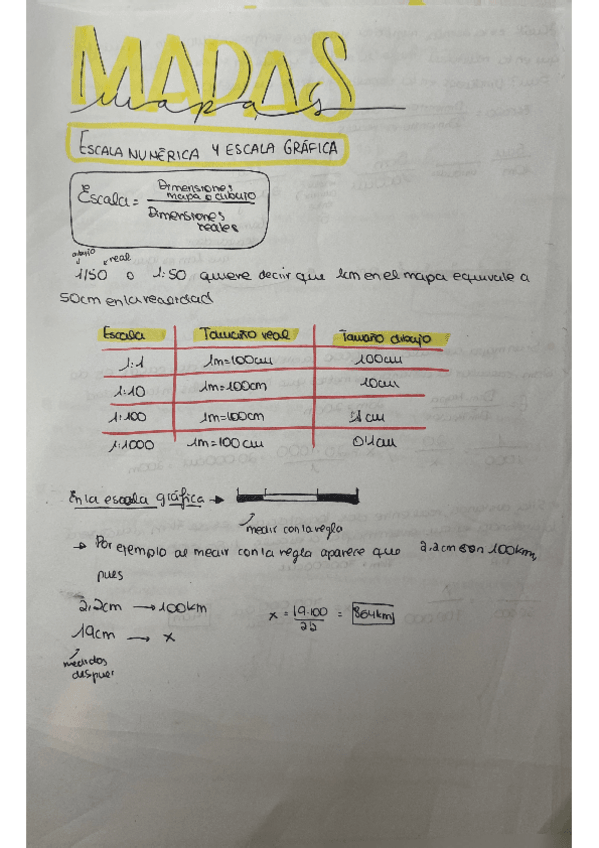 MAPAS
mapas
ESCALA NUMÉRICA Y ESCALA GRÁFICA
Escala = Dimensiones mapa o dibujo / Dimensiones reales
dibujo real
1/50 o 1:50 quiere decir que 1cm en el mapa equivale a
50cm en la realidad
Escala Tamaño real Tamaño dibujo
1:1 1m=100cm 100cm
1:10 1m=100cm 10cm
1:100 1m=100cm 1cm
1:1000 1m=100cm 0'1cm
En la escala gráfica →
medir con la regla
→ Por ejemplo al medir con la regla aparece que 2,2cm son 100km,
pues
2,2cm → 100km
19cm → x
x = 19·100 / 2,2 = 864km
medidos
despues